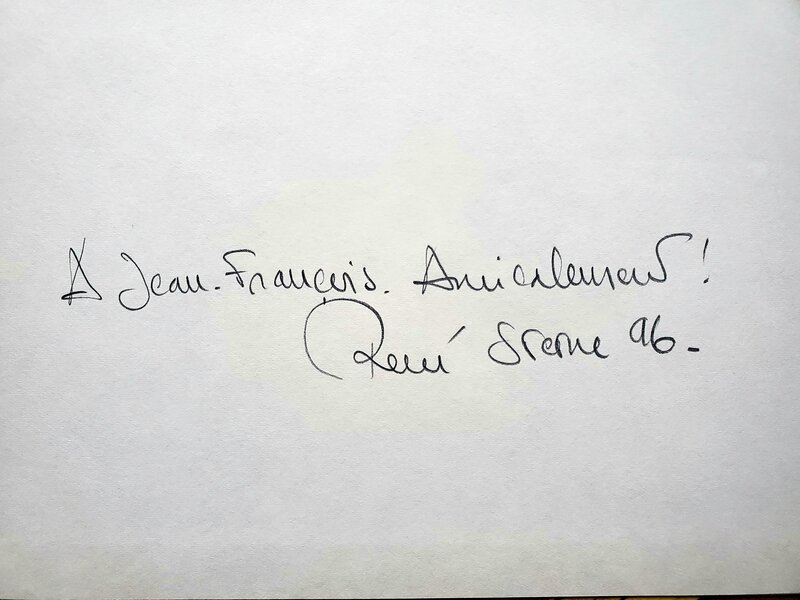 A Jean-François. Amicalement !
René Sterne 96-